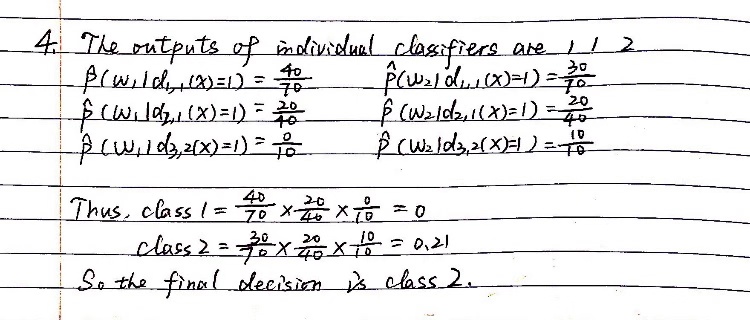 4. The outputs of individual classifiers are 1 1 2
p̂(w₁|d₁,₁(x)=1) = 40/70 p̂(w₂|d₁,₁(x)=1) = 30/70
p̂(w₁|d₂,₁(x)=1) = 20/40 p̂(w₂|d₂,₁(x)=1) = 20/40
p̂(w₁|d₃,₂(x)=1) = 0/10 p̂(w₂|d₃,₂(x)=1) = 10/10
Thus, class 1 = 40/70 × 20/40 × 0/10 = 0
class 2 = 30/70 × 20/40 × 10/10 = 0.21
So the final decision is class 2.